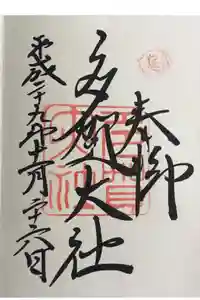 奉拝
多賀大社
平成二十九年十一月二十六日